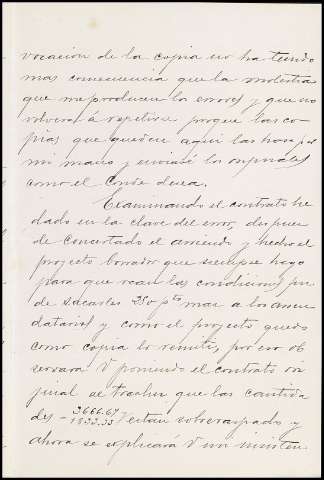 vocación de la copia no ha tenido
mas consecuencia que la molestia
que me producen los errores y que no
volverá á repetirse porque las co-
pias que queden aqui las hare por
mi mano y enviaré los originales
como el Conde desea.
Examinando el contrato he
dado en la clave del error, despues
de concertado el arriendo y hecho el
proyecto borrador que siempre hago
para que vean las condiciones, pu-
de sacarles 250 pts mas a los arren
datarios y como el proyecto quedó
como copia lo remití, por eso ob
servara V poniendo el contrato ori
jinal al trasluz que las cantida
des - 3666.67
1833.33 están sobreraspados y
ahora se esplicará V un minister